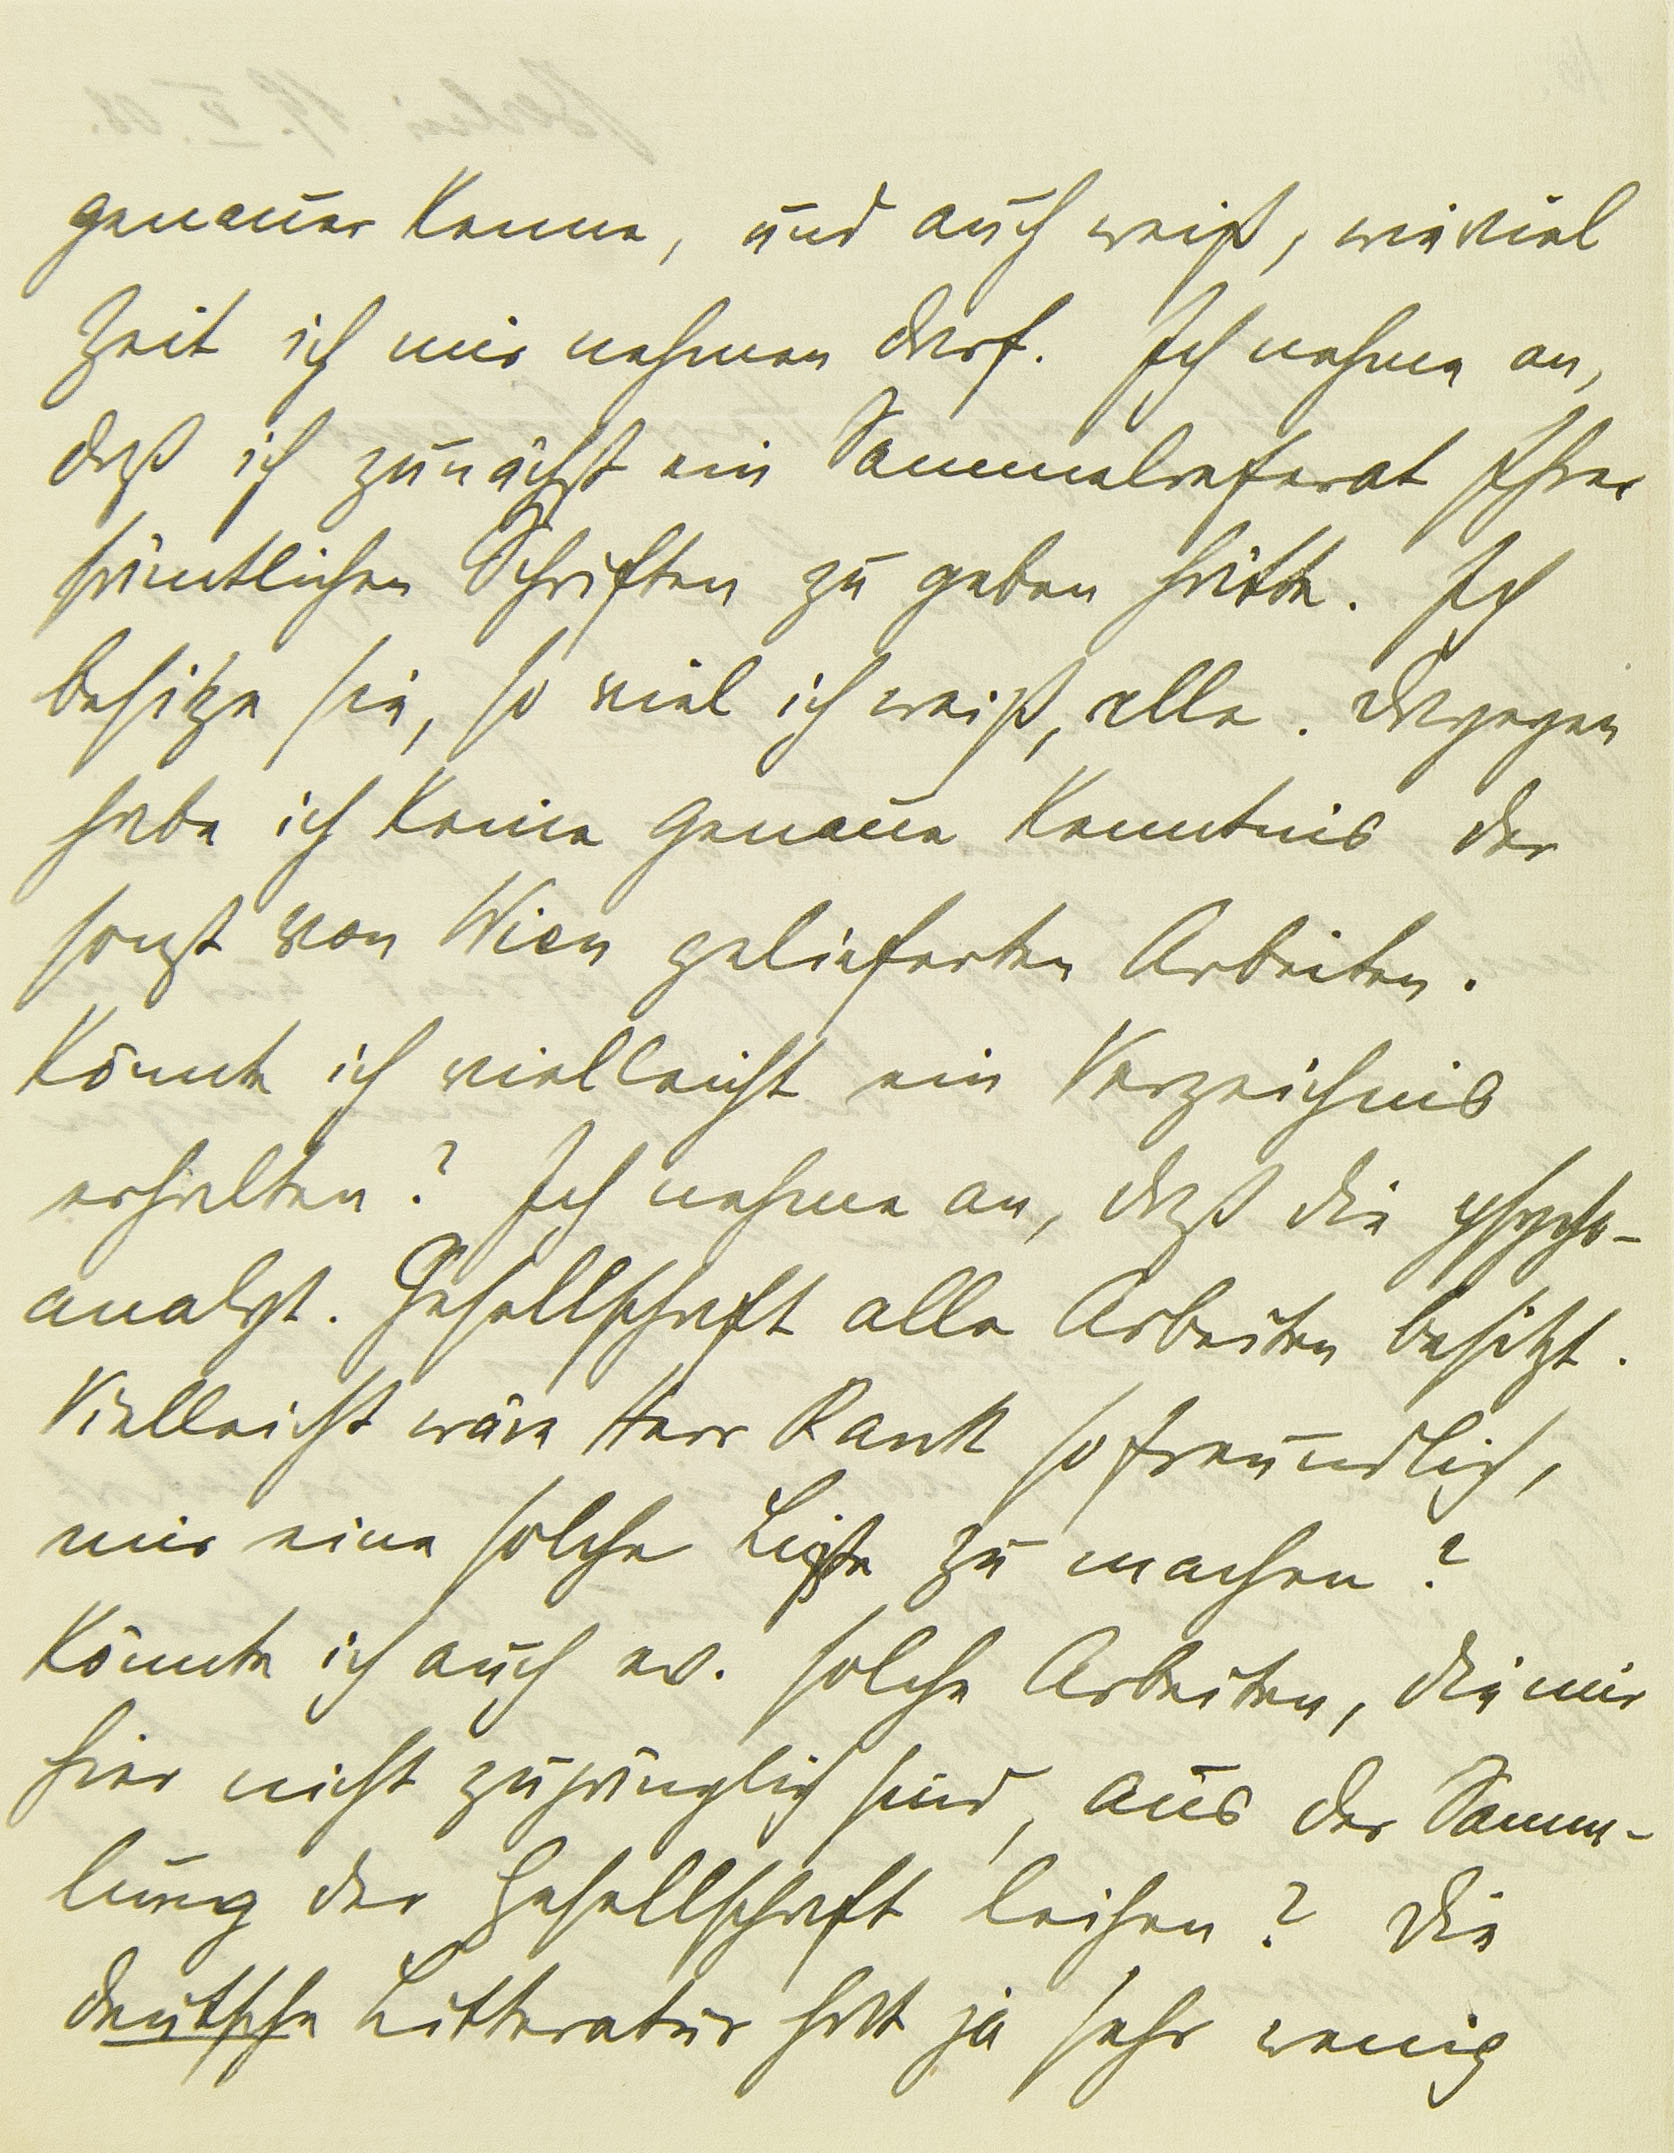 genauer kenne, und auch weiß, wieviel
Zeit ich mir nehmen darf. Ich nehme an,
daß ich zunächst ein Sammelreferat Ihrer
sämtlichen Schriften zu geben hätte. Ich
besitze sie, so viel ich weiß, alle. Dagegen
habe ich keine genaue Kenntnis der
sonst von Wien gelieferten Arbeiten.
Könnte ich vielleicht ein Verzeichnis
erhalten? Ich nehme an, daß die psycho-
analyt. Gesellschaft alle Arbeiten besitzt.
Vielleicht wäre Herr Rank so freundlich,
mir eine solche Liste zu machen?
Könnte ich auch ev. solche Arbeiten, die mir
hier nicht zugänglich sind, aus der Samm-
lung der Gesellschaft leihen? Die
deutsche Litteratur hat ja sehr wenig